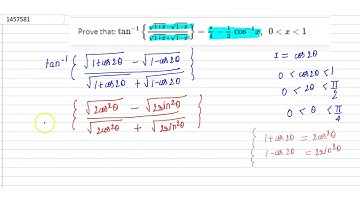 1457581
Prove that: tan⁻¹{(√1+x−√1−x)/(√1+x+√1−x)} = π/4 − 1/2 cos⁻¹x, 0 < x < 1
tan⁻¹ { (√1+cos2θ − √1−cos2θ)/(√1+cos2θ + √1−cos2θ) }
{ (√2cos²θ − √2sin²θ)/(√2cos²θ + √2sin²θ) }
x = cos2θ
0 < cos2θ < 1
0 < 2θ < π/2
0 < θ < π/4
{ 1+cos2θ = 2cos²θ
1−cos2θ = 2sin²θ